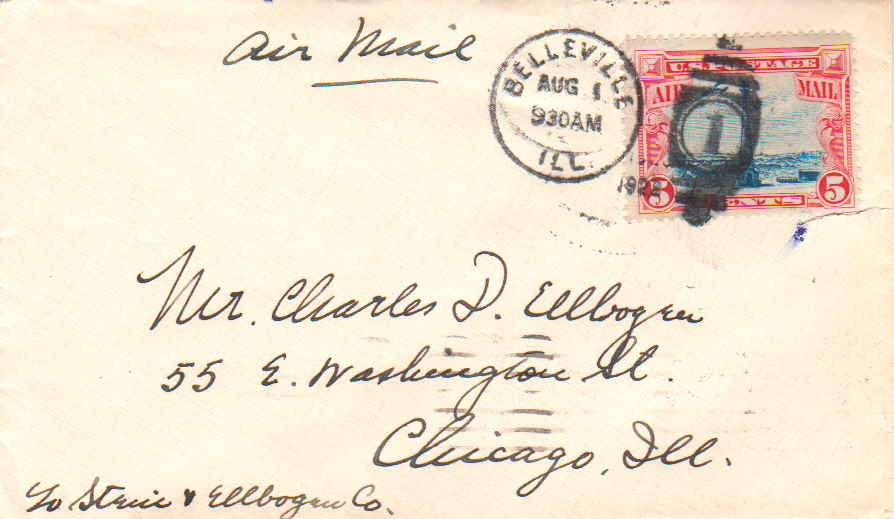 Air Mail
BELLEVILLE
AUG 1
930 AM
ILL.
U.S. POSTAGE
AIR MAIL
1
5 CENTS 5
Mr. Charles D. Ellbogen
55 E. Washington St.
Chicago, Ill.
& Ellbogen Co.